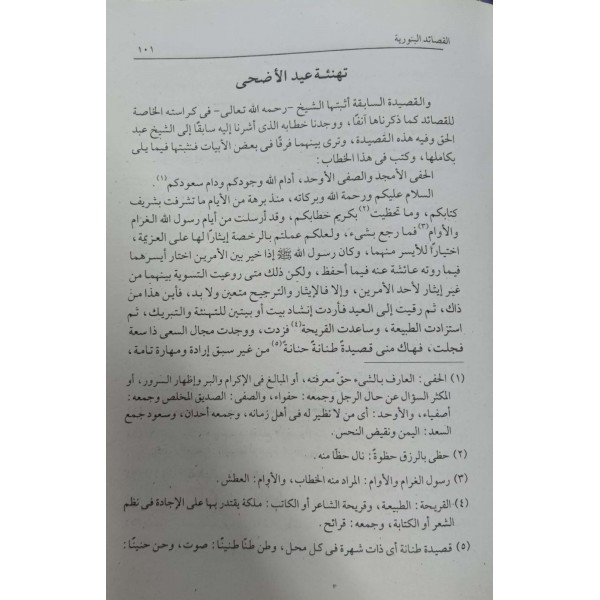 القصائد البنورية
١٠١
تهنئة عيد الأضحى
والقصيدة السابقة أثبتها الشيخ -رحمه الله تعالى- فى كراسته الخاصة
للقصائد كما ذكرناها آنفًا، ووجدنا خطابه الذى أشرنا إليه سابقًا إلى الشيخ عبد
الحق وفيه هذه القصيدة، ونرى بينهما فرقًا فى بعض الأبيات فنثبتها فيما يلى
بكاملها، وكتب فى هذا الخطاب:
الحفى الأمجد والصفى الأوحد، أدام الله وجودكم ودام سعودكم(١).
السلام عليكم ورحمة الله وبركاته، منذ برهة من الأيام ما تشرفت بشريف
كتابكم، وما تحظيت(٢) بكريم خطابكم، وقد أرسلت من أيام رسول الله الغرام
والأوام(٣) فما رجع بشىء، ولعلكم عملتم بالرخصة إيثارًا لها على العزيمة،
اختيارًا للأيسر منهما، وكان رسول الله ﷺ إذا خير بين الأمرين اختار أيسرهما
فيما روته عائشة عنه فيما أحفظ، ولكن ذلك متى روعيت التسوية بينهما من
غير إيثار لأحد الأمرين، وإلا فالإيثار والترجيح متعين ولا بد، فأين هذا من
ذاك، ثم رقيت إلى العيد فأردت إنشاد بيت أو بيتين للتهنئة والتبريك، ثم
استزادت الطبيعة، وساعدت القريحة(٤) فزدت، ووجدت مجال السعى ذا سعة
فجلت، فهاك منى قصيدة طنانة حنانة(٥) من غير سبق إرادة ومهارة تامة،
(١) الحفى: العارف بالشىء حقّ معرفته، أو المبالغ فى الإكرام والبر وإظهار السرور، أو
المكثر السؤال عن حال الرجل وجمعه: حفواء، والصفى: الصديق المخلص وجمعه:
أصفياء، والأوحد: أى من لا نظير له فى أهل زمانه، وجمعه أحدان، وسعود جمع
السعد: اليمن ونقيض النحس.
(٢) حظى بالرزق حظوة: نال حظًا منه.
(٣) رسول الغرام والأوام: المراد منه الخطاب، والأوام: العطش.
(٤) القريحة: الطبيعة، وقريحة الشاعر أو الكاتب: ملكة يقتدر بها على الإجادة فى نظم
الشعر أو الكتابة، وجمعه: قرائح.
(٥) قصيدة طنانة أى ذات شهرة فى كل محل، وطن طنًا طنينًا: صوت، وحن حنينًا: